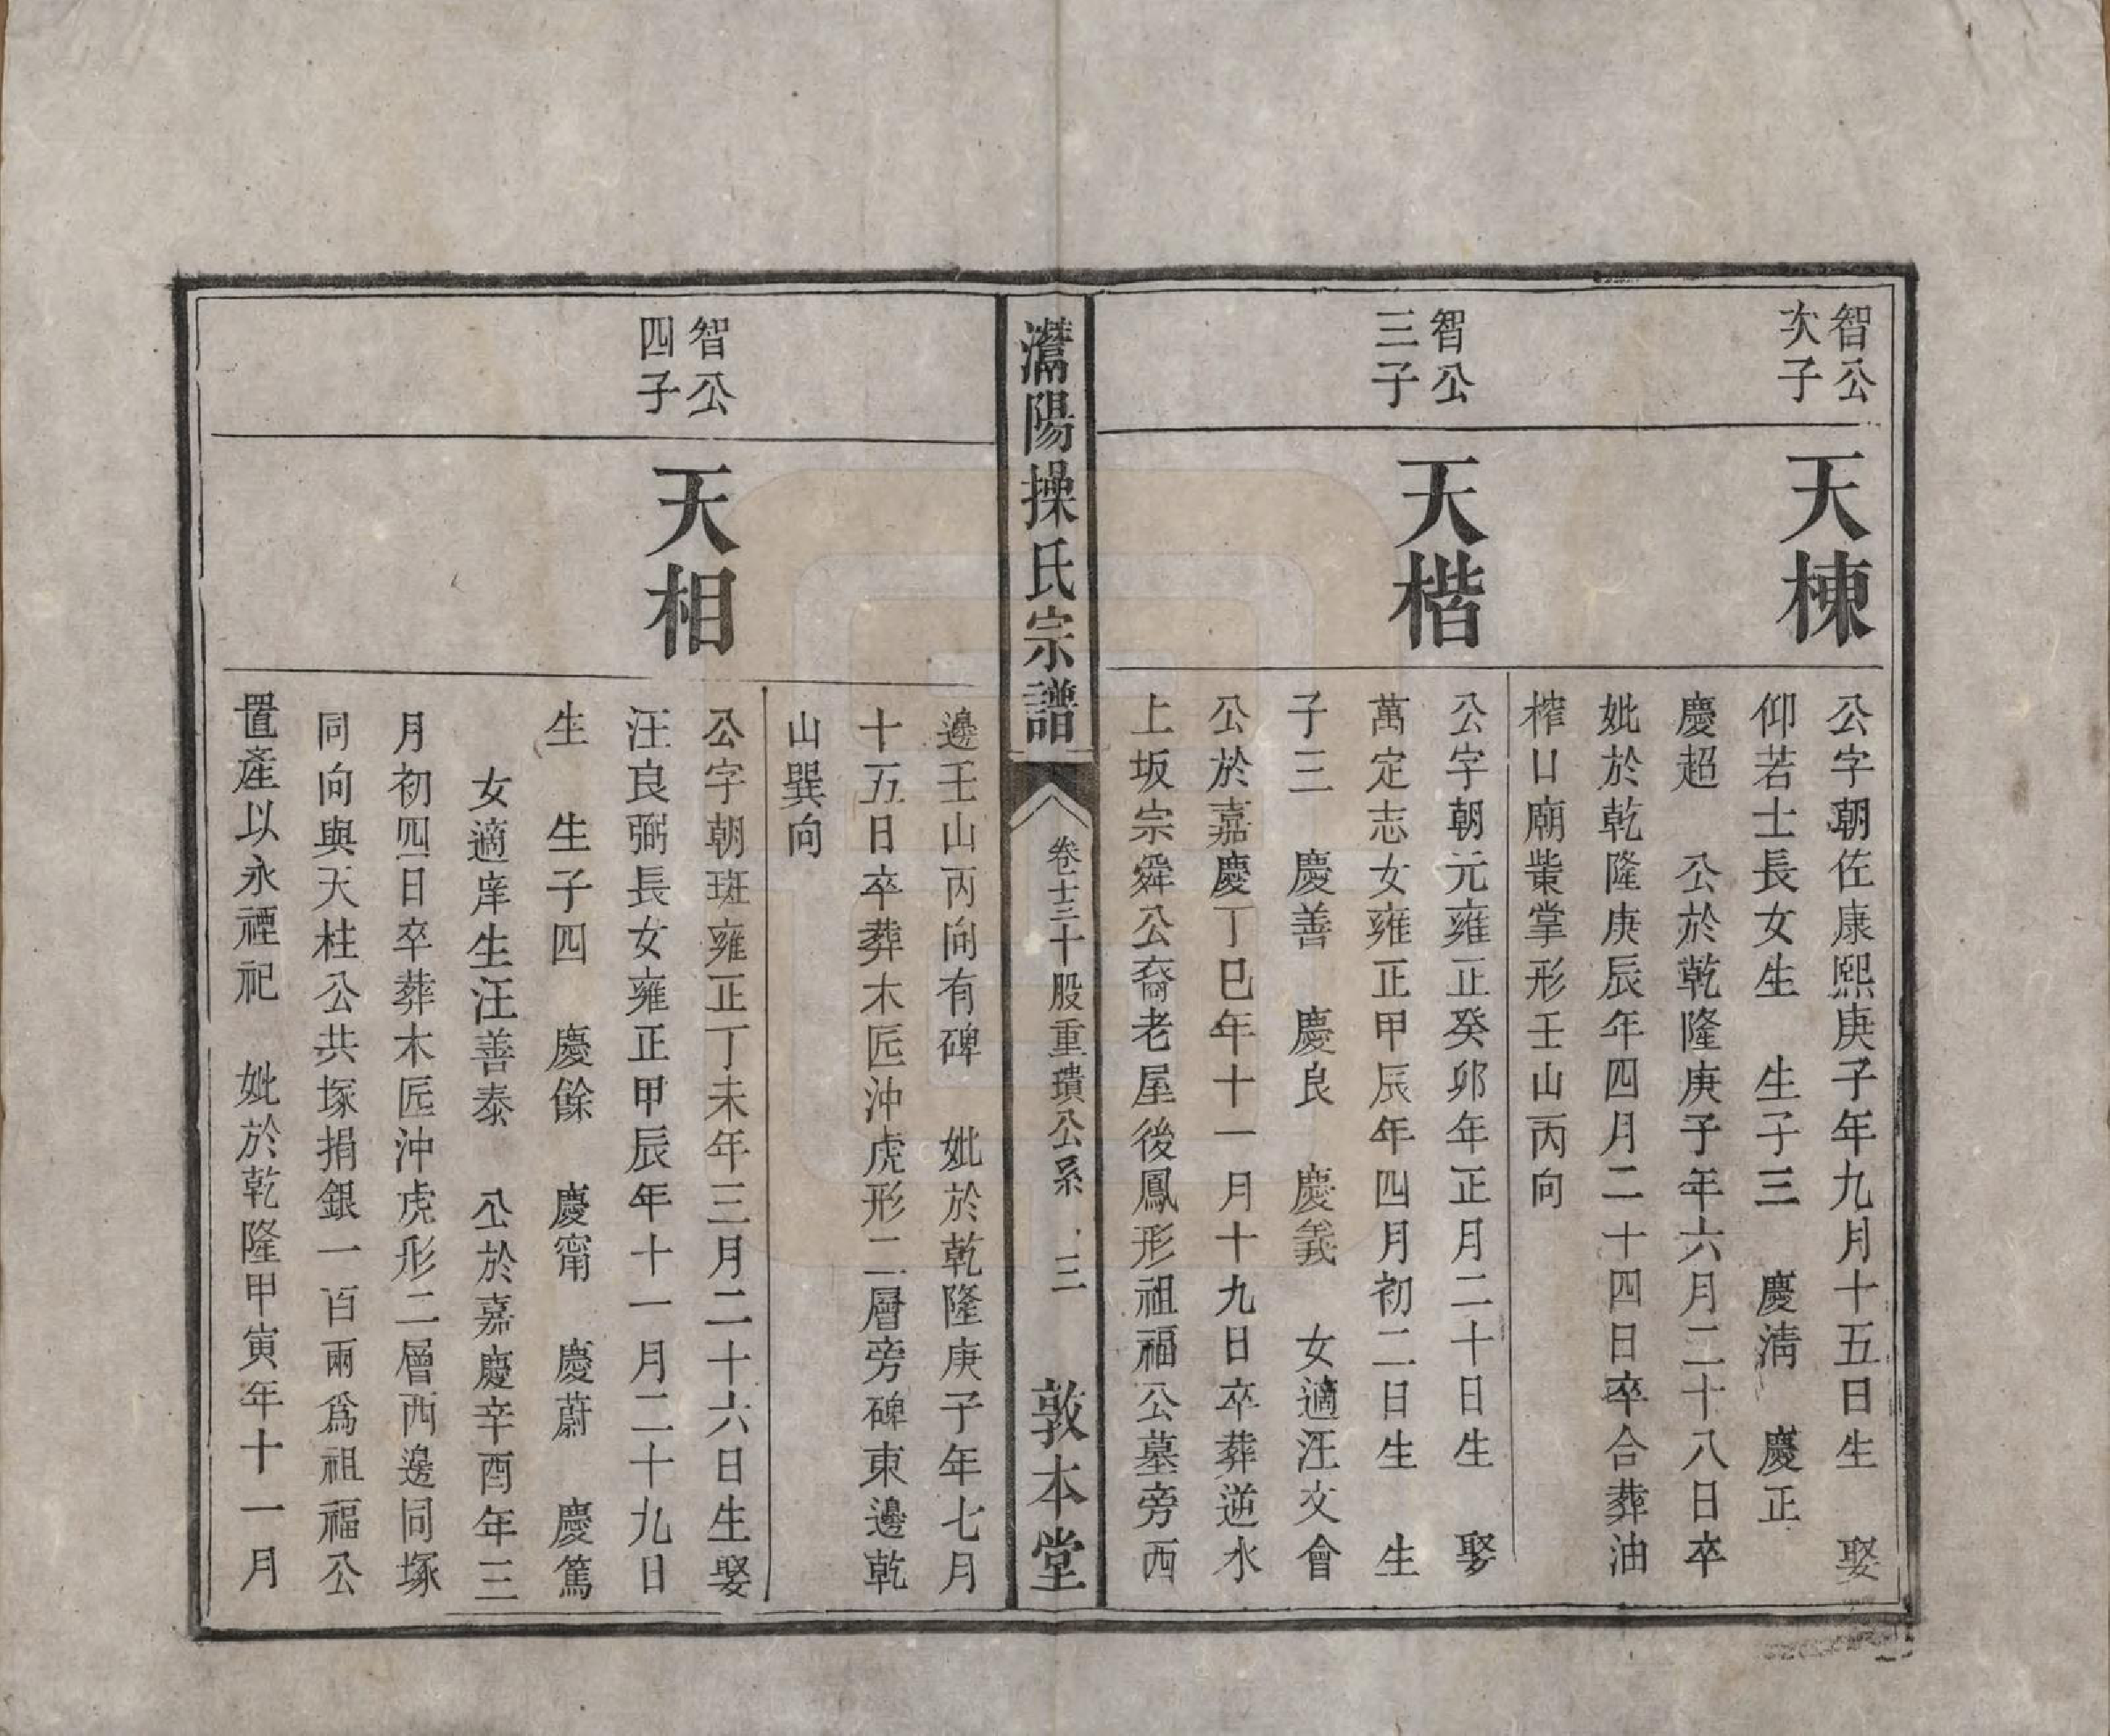 智公
次子
天棟
公字朝佐康熙庚子年九月十五日生　娶
仰若士長女生　生子三　慶淸　慶正
慶超　公於乾隆庚子年六月二十八日卒
妣於乾隆庚辰年四月二十四日卒合葬油
榨口廟棠掌形壬山丙向
智公
三子
天楷
公字朝元雍正癸卯年正月二十日生　娶
萬定志女雍正甲辰年四月初二日生　生
子三　慶善　慶良　慶義　女適汪文會
公於嘉慶丁巳年十一月十九日卒葬逆水
上坂宗舜公裔老屋後鳳形祖福公墓旁西
灊陽操氏宗譜
卷七三十股重璝公系　三
敦本堂
邊壬山丙向有碑　妣於乾隆庚子年七月
十五日卒葬木匠沖虎形二層旁碑東邊乾
山巽向
智公
四子
天相
公字朝斑雍正丁未年三月二十六日生娶
汪良弼長女雍正甲辰年十一月二十九日
生　生子四　慶餘　慶甯　慶蔚　慶篤
女適庠生汪善泰　公於嘉慶辛酉年三
月初四日卒葬木匠沖虎形二層西邊同塚
同向與天柱公共塚捐銀一百兩爲祖福公
置產以永禋祀　妣於乾隆甲寅年十一月